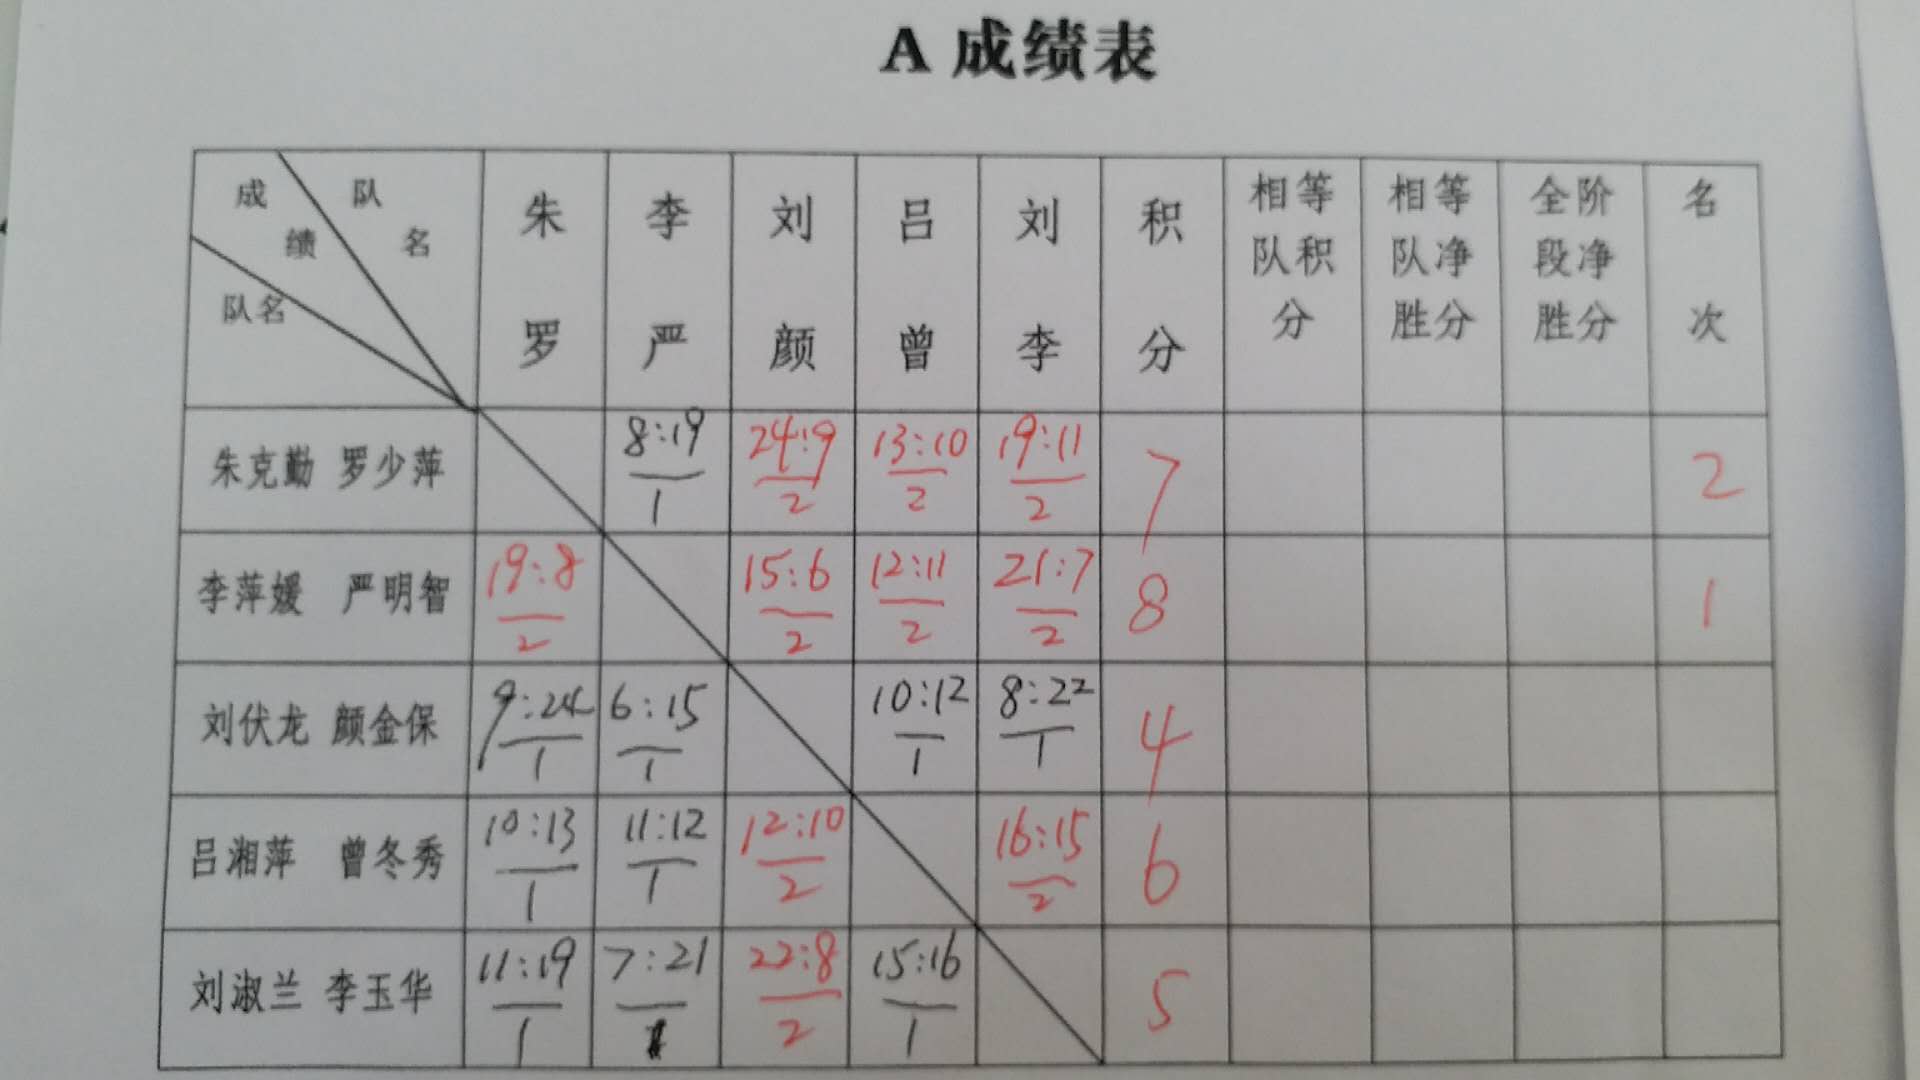 A 成绩表
成绩 队名 队名 朱罗 李严 刘颜 吕曾 刘李 积分 相等队积分 相等队净胜分 全阶段净胜分 名次
朱克勤 罗少萍 8:19/1 24:9/2 13:10/2 19:11/2 7 2
李萍媛 严明智 19:8/2 15:6/2 12:11/2 21:7/2 8 1
刘伏龙 颜金保 9:24/1 6:15/1 10:12/1 8:22/1 4
吕湘萍 曾冬秀 10:13/1 11:12/1 12:10/2 16:15/2 6
刘淑兰 李玉华 11:19/1 7:21/1 22:8/2 15:16/1 5